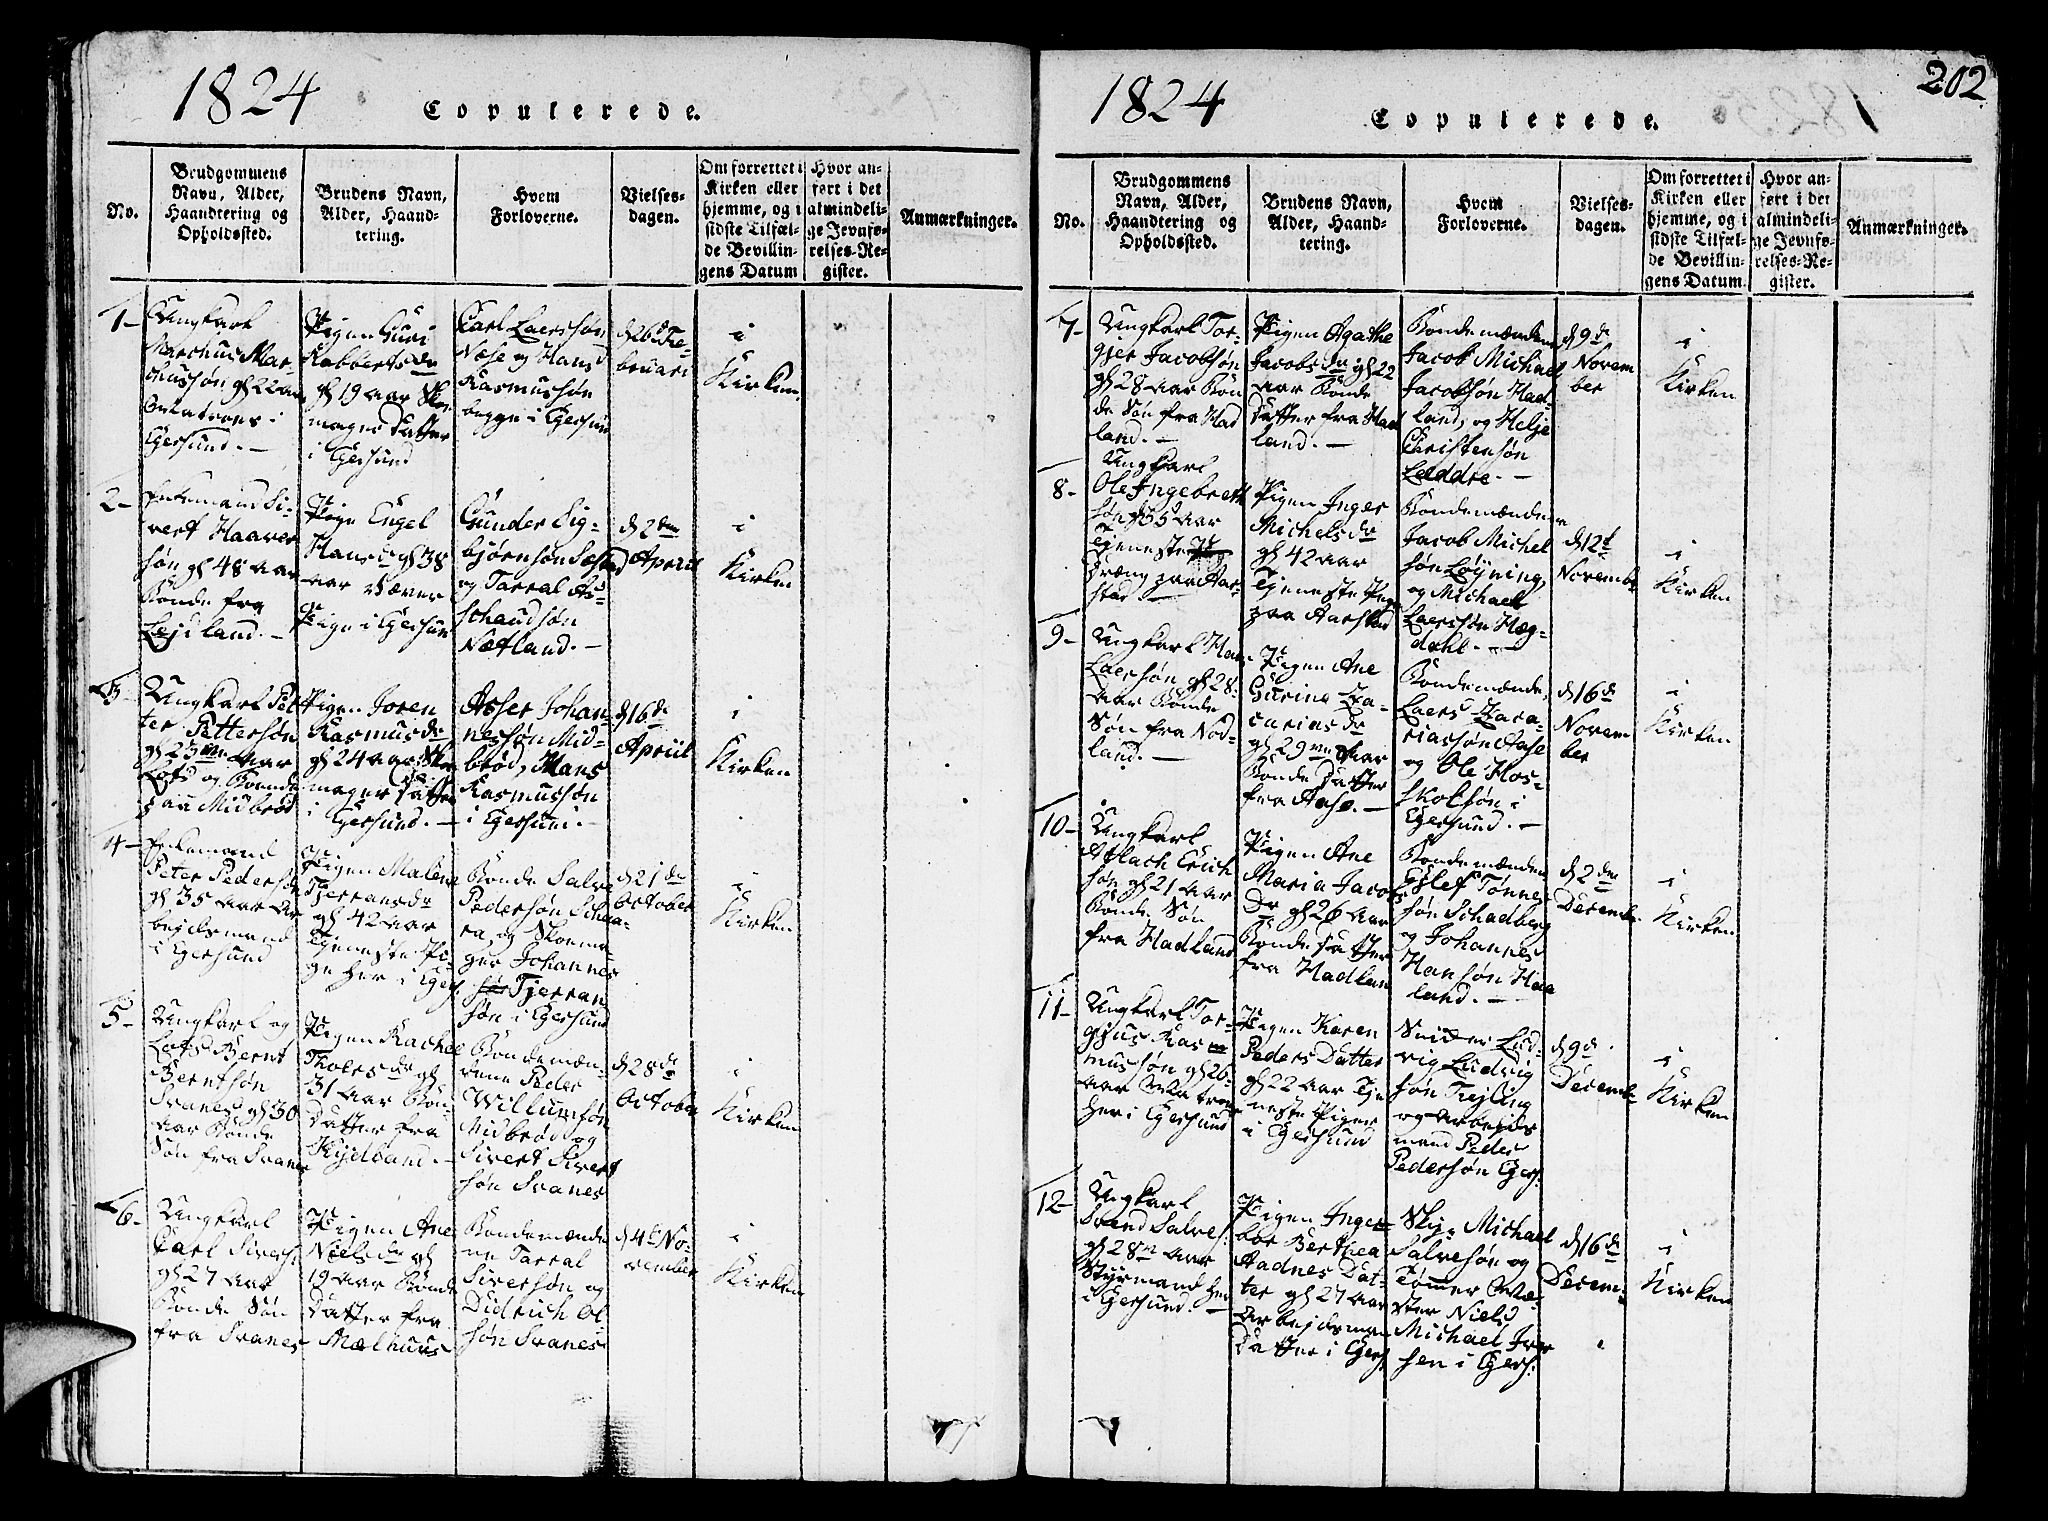 1824
Copulerede.
No.
Brudgommens
Navn, Alder,
Haandtering og
Opholdssted.
Brudens Navn,
Alder, Haand-
tering.
Hvem
Forloverne.
Vielses-
dagen.
Om forrettet i
Kirken eller
hjemme, og i
sidste Tilfæl-
de Bevillin-
gens Datum
Hvor an-
ført i det
almindeli-
ge Jevnfø-
relses-Re-
gister.
Anmærkninger.
1-
Ungkarl
Marchus Mar
chussøn gl 22 aar
i
Egersund. -
Pigen Guri
Rabbertsdr
gl 19 aar Sko
mager Datter
i Egersund
Carl Laerssøn
Næse og Hans
Rasmussøn
begge i Egersund
d 26d Fe-
bruari
i
Kirken
2-
Enkemand Si-
vert Haaver
søn gl 48 aar
Bonde fra
Lejdland. -
Pige Engel
Hansdr gl 38
aar Væver
Pige i Egersun
Gunder Sig-
bjørnsøn
og Tarral As-
Nætland. -
d 2den
April
i
Kirken
3-
Ungkarl Pet
ter Pettersøn
gl 23 aar
Lods og Bonde
paa Midbrød
Pigen Joren
Rasmusdr
gl 24 aar Sko
mager Datter
i Egersund. -
Asser Johan-
nessøn Mid-
brød, Hans
Rasmussøn
i Egersund. -
d 16de
April
i
Kirken
4-
Enkemand
Peter Peders
gl 35 aar Ar
bejdsmand
i Egersund
Pigen Malene
Tjerransdr
gl 42 aar
Tjeneste Pi-
ge her i Egers.
Bonde Salve
Pedersøn Schaa-
ra, og Skoma-
ger Johannes
Tjerran
søn i Egersund
d 21de
October
i
Kirken
5-
Ungkarl og
Lods Bernt
Berntsøn
Svanes gl 30
aar Bonde
Søn fra Svanes
Pigen Rachel
Tholersdr gl
31 aar Bon-
Datter fra
Bondemæn-
dene Peder
Willumsøn
Midbrød og
Sivert Sivert
søn Svanes
d 28de
October
i
Kirken
6-
Ungkarl
Carl Sivers:
gl 27 aar
Bonde Søn
fra Svanes
Pigen Ane
Nielsdr gl
19 aar Bonde
Datter fra
Mælhuus
Bondemænde
ne Tarral
Siversøn og
Didrich Ol
søn Svanes
d 4de No-
vember
i
Kirken
1824
Copulerede.
202
No.
Brudgommens
Navn, Alder,
Haandtering og
Opholdssted.
Brudens Navn,
Alder, Haand-
tering.
Hvem
Forloverne.
Vielses-
dagen.
Om forrettet i
Kirken eller
hjemme, og i
sidste Tilfæl-
de Bevillin-
gens Datum.
Hvor an-
ført i det
almindeli-
ge Jevnfø-
relses-Re-
gister.
Anmærkninger.
7-
Ungkarl Tor-
gjer Jacobsøn
gl 28 aar Bon
de Søn fra Had
land. -
Pigen Agathe
Jacobsdr gl 22
aar Bonde
Datter fra Had
land. -
Bondemændene
Jacob Michael
Jacobsøn Had-
land, og Helje
Christensøn
Læddre. -
d 9de
Novem
ber
i
Kirken
8-
Ungkarl
Ole Ingebreth
søn gl 35 aar
Tjeneste
Dræng paa Aar-
stad -
Pigen Inger
Michelsdr
gl 42 aar
Tjeneste Pige
paa Aarstad
Bondemændene
Jacob Michel
søn Løyning,
og Michael
Laerssøn Hæg-
dahl. -
d 12te
November
i
Kirken
9-
Ungkarl Han
Laersøn gl 28
aar Bonde
Søn fra Nod-
land. -
Pigen Ane
Gurine Za-
cariasdr
gl 29 aar
Bonde Datter
fra Aase. -
Bondemænde,
Laers Zaca-
riassøn Aase
og Ole Hos-
skolsøn i
Egersund. -
d 16de
Novem
ber
i
Kirken
10-
Ungkarl
Aslach Erich
søn gl 21 aar
Bonde Søn
fra Hadland
Pigen Ane
Maria Jacobs
Dr gl 26 aar
Bonde Datter
fra Hadlan
Bondemænden
Eglef Tønnes
søn Schadberg
og Johannes
Hansøn Haa
land. -
d 2den
Decemb.
i
Kirken
11-
Ungkarl Tor-
gjus Ras
mussøn gl 26
aar Matros
her i Egersund
Pigen Karen
Peders Datter
gl 22 aar Tje
neste Piger
i Egersund
Snider Lud-
vig Ludvig
søn Trejling
og Arbejds
mand Peder
Pedersøn Egers.
d 9de
Decemb.
i
Kirken
12-
Ungkarl
Svend Salves:
gl 28 aar
Styrmand her
i Egersund. -
Pigen Inge-
bor Berthea
Aadnes Dat-
ter gl 27 aar
Arbejdsman
Datter i Egers
Skip. Michael
Salvesøn og
Tømmer Me-
ster Niels
Michael Iver
sen i Egers:
d 16de
Decem.
i
Kirken